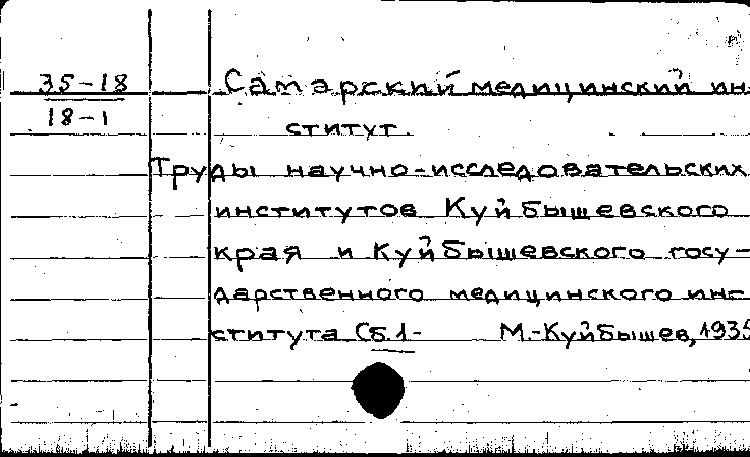 35-18
18-1
Самарский медицинский ин-
ститут.
Труды научно-исследовательских
институтов Куйбышевского
края и Куйбышевского госу-
дарственного медицинского инс
ститута Сб.1- М.-Куйбышев, 1935